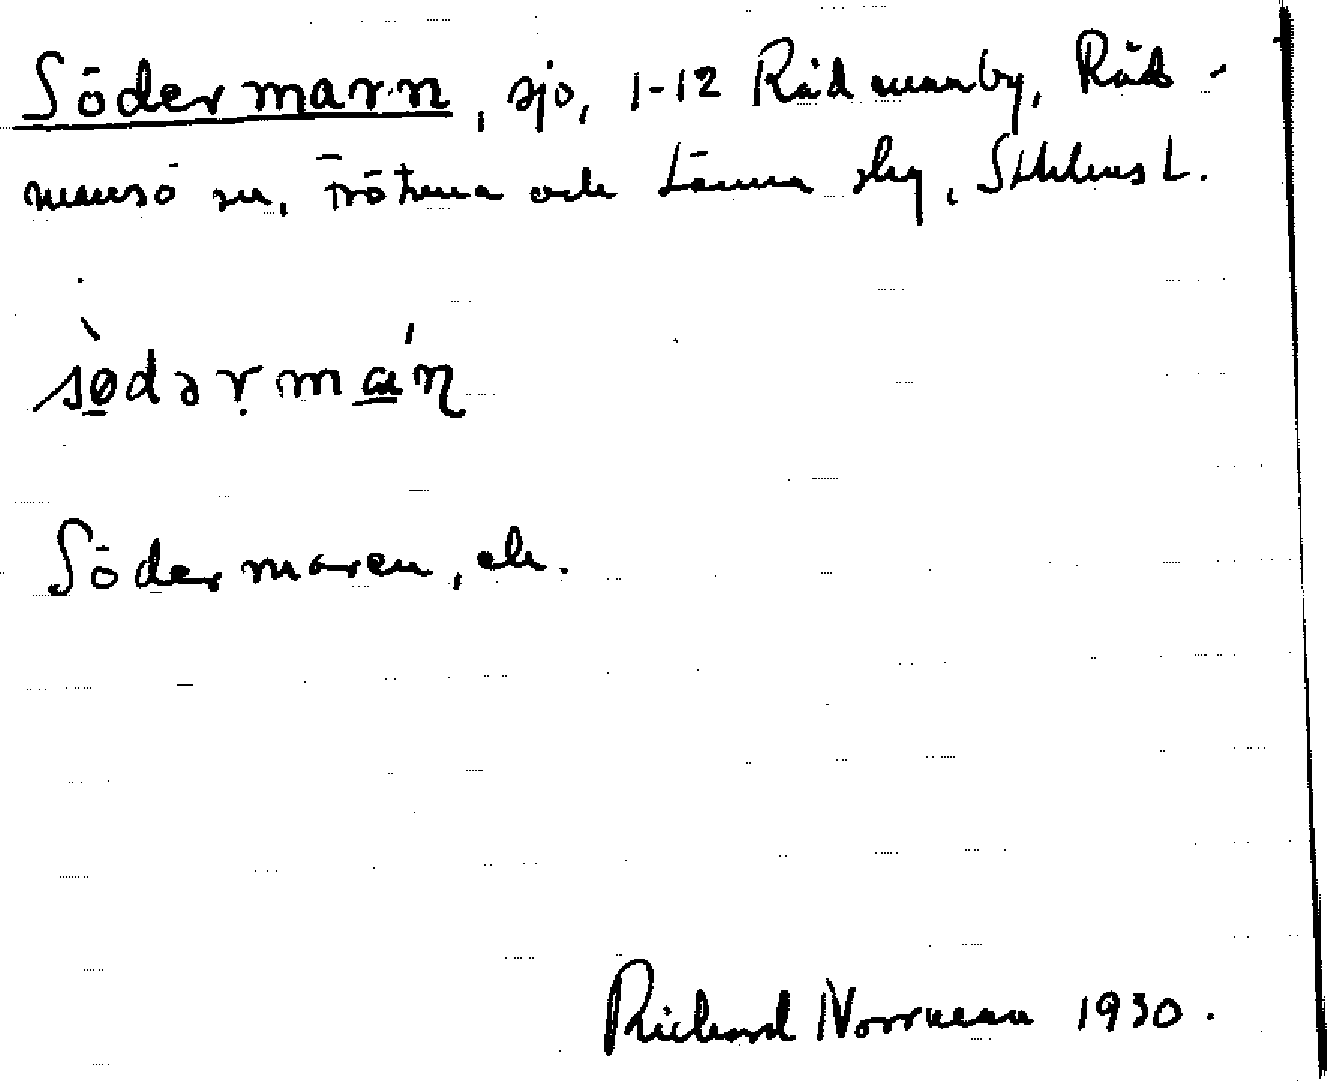 Södermarn, sjö, 1-12 Rådmanby, Råd-
mansö sn, Frötuna och Länna skg, Sthlms L.
sødərmaɳ
Södermaren, ek.
Richard Norrman 1930.